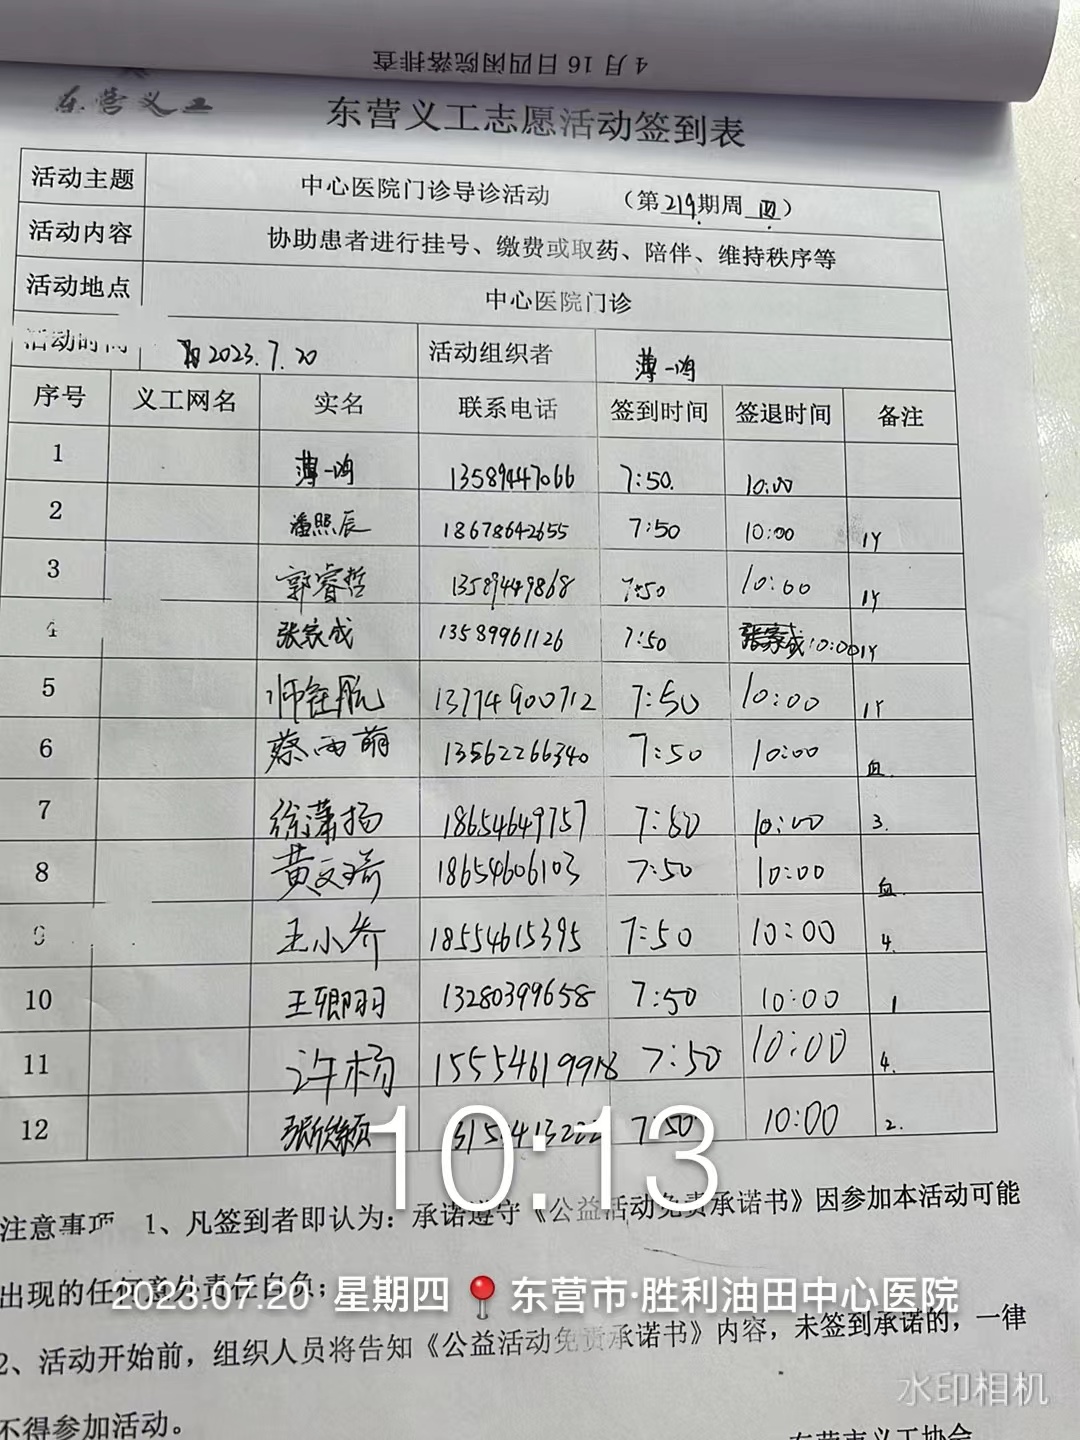 4月16日四闲院落排查
东营义工
东营义工志愿活动签到表
活动主题 中心医院门诊导诊活动 （第219期周四）
活动内容 协助患者进行挂号、缴费或取药、陪伴、维持秩序等
活动地点 中心医院门诊
活动时间 2023.7.20 活动组织者 薄一鸿
序号 义工网名 实名 联系电话 签到时间 签退时间 备注
1 薄一鸿 13589447066 7:50. 10:00
2 潘熙辰 18678642655 7:50 10:00 1Y
3 郭睿哲 13589449868 7:50 10:00 1Y
4 张家成 13589961126 7:50 10:00 1Y
5 师钰航 13774900712 7:50 10:00 1Y
6 蔡雨萌 13562266340 7:50 10:00 血.
7 徐潇扬 18654649757 7:50 10:00 3.
8 黄文琦 18654606103 7:50 10:00 血.
9 王小乔 18554615395 7:50 10:00 4.
10 王卿羽 13280399658 7:50 10:00 1
11 许杨 15554619918 7:50 10:00 4.
12 7:50 10:00 2.
10:13
注意事项 1、凡签到者即认为：承诺遵守《公益活动免责承诺书》因参加本活动可能
出现的任何意外责任自负；
2023.07.20 星期四 东营市·胜利油田中心医院
2、活动开始前，组织人员将告知《公益活动免责承诺书》内容，未签到承诺的，一律
不得参加活动。
水印相机
东营市义工协会